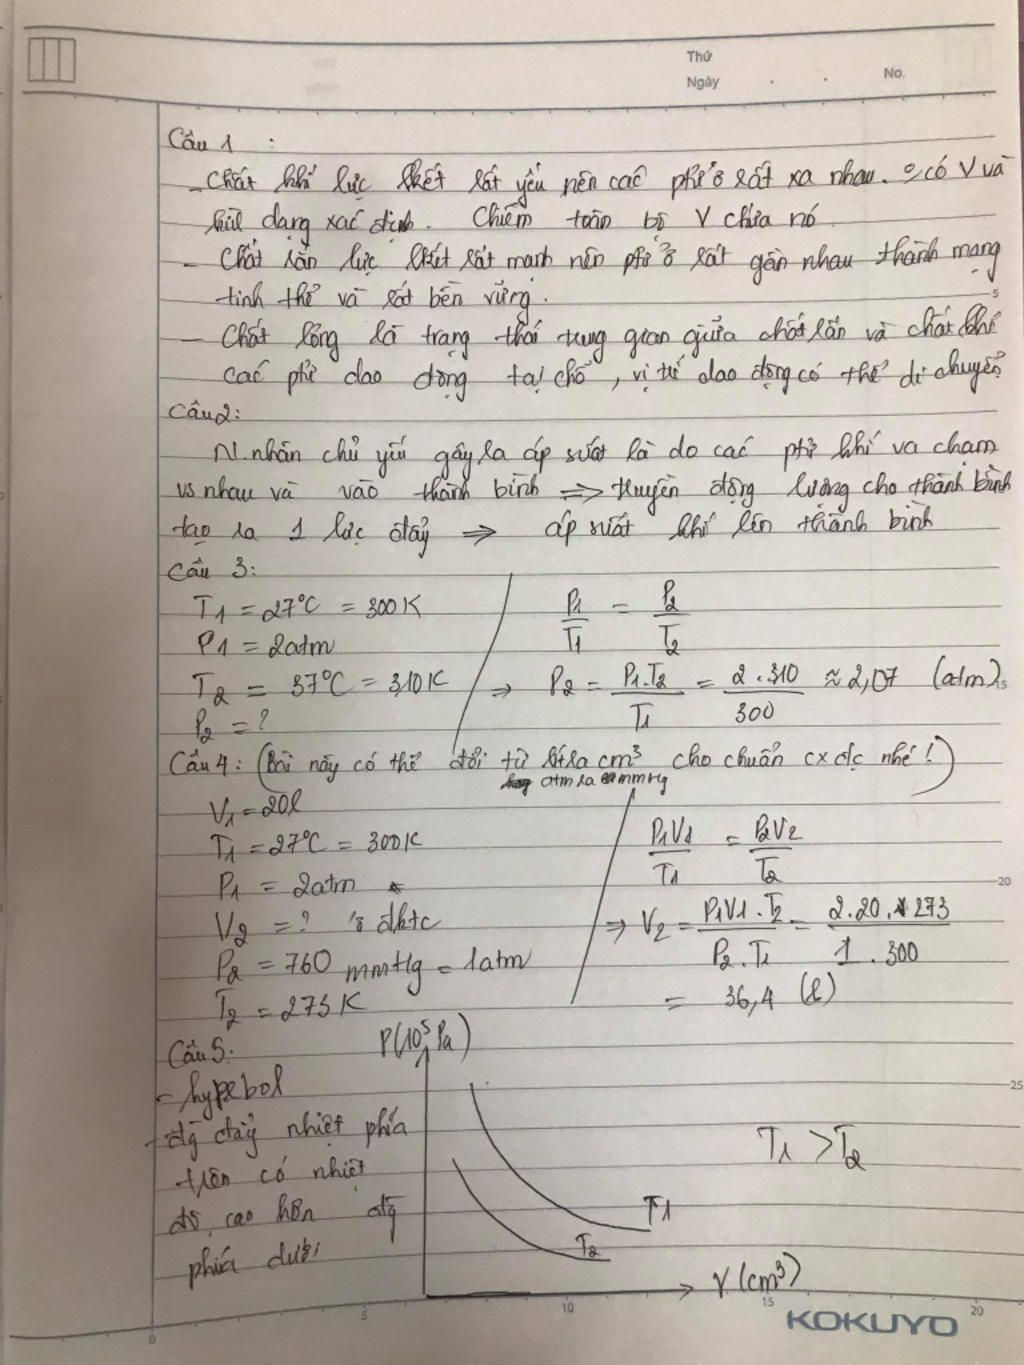 Thứ
Ngày . . No.
Câu 1 :
- Chất khí lực lkết rất yếu nên các phtử ở rất xa nhau. có V và
hình dạng xác định. Chiếm toàn bộ V chứa nó
- Chất rắn lực lkết rất mạnh nên phtử ở rất gần nhau thành mạng
tinh thể và rất bền vững.
- Chất lỏng là trạng thái trung gian giữa chất rắn và chất khí
các phtử dao động tại chỗ, vị trí dao động có thể di chuyển
Câu 2:
N.nhân chủ yếu gây ra áp suất là do các phtử khí va chạm
vs nhau và vào thành bình => truyền động lượng cho thành bình
tạo ra 1 lực đẩy => áp suất khí lên thành bình
Câu 3:
T1 = 27°C = 300K
P1 = 2atm
T2 = 37°C = 310K
P2 = ?
P1/T1 = P2/T2
=> P2 = P1.T2/T1 = 2.310/300 ≈ 2,07 (atm)
Câu 4: (Bài này có thể đổi từ lít ra cm³ cho chuẩn cx đc nhé!)
atm ra mmHg
V1 = 20l
T1 = 27°C = 300K
P1 = 2atm
V2 = ? ở đktc
P2 = 760 mmHg = 1atm
T2 = 273K
P1V1/T1 = P2V2/T2
=> V2 = P1V1.T2/P2.T1 = 2.20.273/1.300
= 36,4 (l)
Câu 5:
- hypebol
- đg đẳng nhiệt phía
trên có nhiệt
độ cao hơn đg
phía dưới
P(10⁵ Pa)
T1 > T2
T1
T2
V (cm³)
5
15
20
25
0 5 10 15 20
KOKUYO